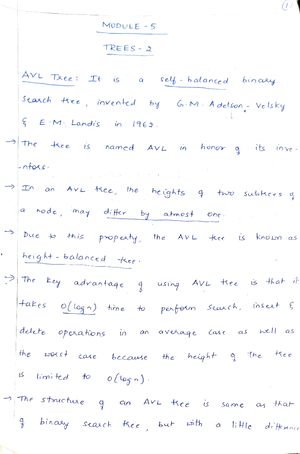 (1)
MODULE - 5
TREES - 2
AVL Tree : It is a self-balanced binary
search tree, invented by G.M. Adelson-Velsky
& E.M. Landis in 1962.
→ The tree is named AVL in honor of its inve-
-ntors.
→ In an AVL tree, the heights of two subtrees of
a node, may differ by atmost one.
→ Due to this property, the AVL tree is known as
height-balanced tree.
→ The key advantage of using AVL tree is that it
takes O(log n) time to perform search, insert &
delete operations in an average case as well as
the worst case because the height of the tree
is limited to O(log n).
→ The structure of an AVL tree is same as that
of binary search tree, but with a little difference